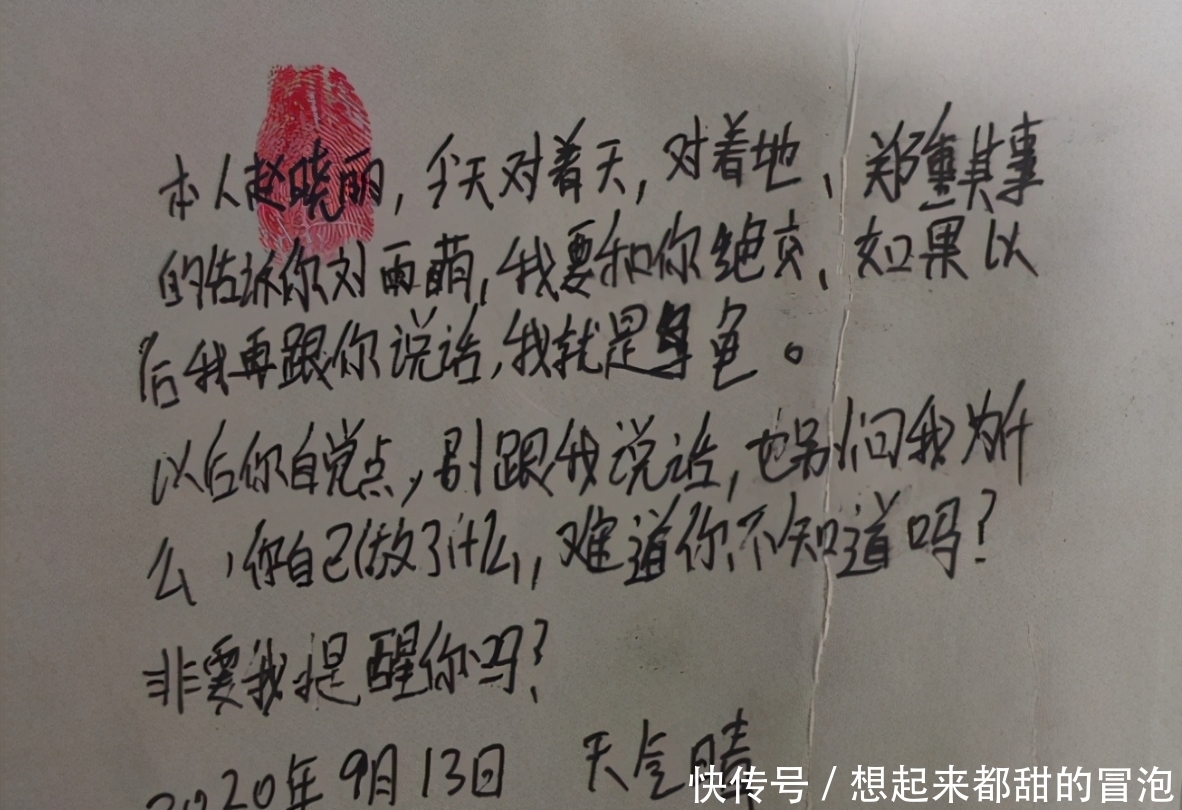 本人赵晓丽,今天对着天,对着地、郑重其事
的告诉你刘雨萌,我要和你绝交、如果以
后我再跟你说话,我就是龟。
以后你自觉点,别跟我说话,也别问我为什
么,你自己做了什么,难道你不知道吗?
非要我提醒你吗?
2020年9月13日 天气晴
快传号/想起来都甜的冒泡